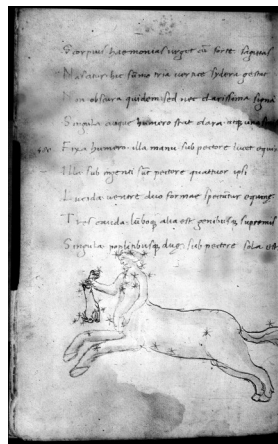 Scorpius haemonias urget cū forte sagittas
Nascitur hic sūmo tria vertice sydera gestat
Non obscura quidem sed nec clarissima signa
Singula utroque humero stat clara
Fixa humero illa manu sub pectore lucet equi
Illa sub ingenti sūt pectore quatuor ipsi
Lucida ventre duo formae
Tres cauda alia est genibusq; supremis
Singula poplitibusq; duo sub pectore sola est